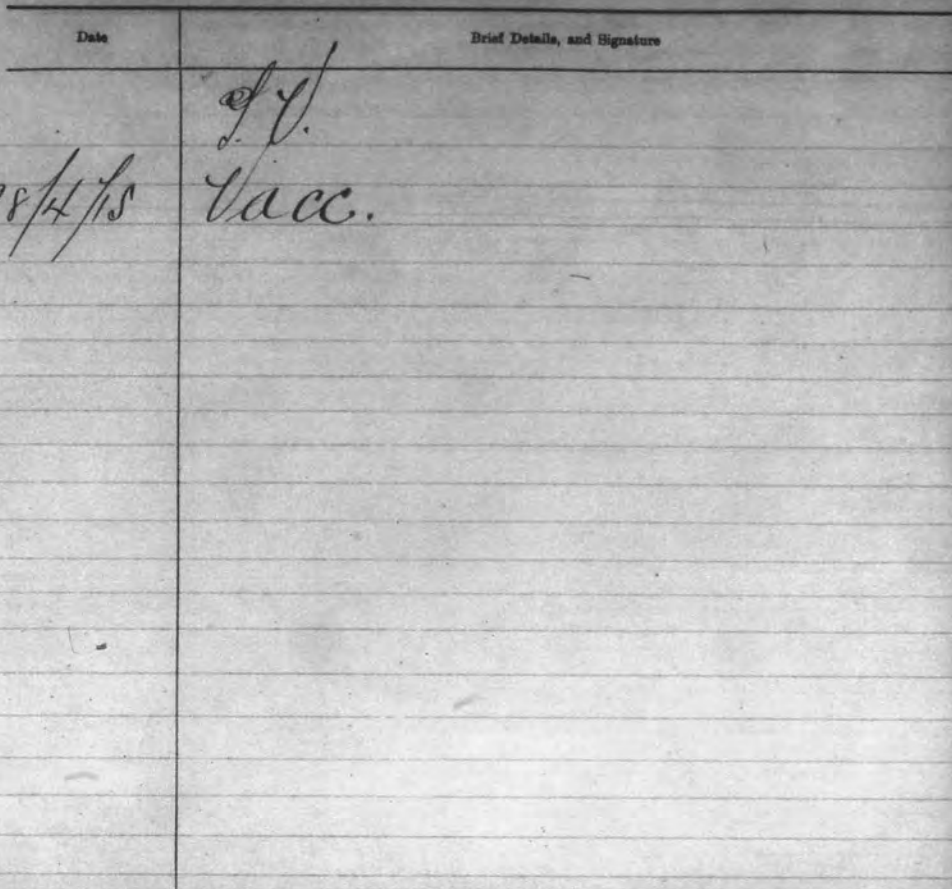 Date Brief Details, and Signature
T.V.
8/4/15 Vacc.